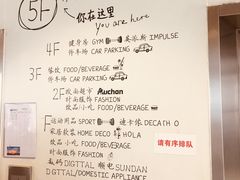 5F
你在这里
you are here
4F 健身房 GYM 英派斯 IMPULSE
停车场 CAR PARKING
3F 餐饮 FOOD/BEVERAGE
停车场 CAR PARKING
2F 欧尚超市 Auchan
时尚服饰 FASHION
饮品小吃 FOOD/BEVERAGE
F 运动用品 SPORT 迪卡侬 DECATH O
家居软装 HOME DECO HOLA
饮品小吃 FOOD/BEVERAGE
时尚服饰 FASHION
数码 DIGITAL 顺电 SUNDAN
DIGTTAL/DOMESTIC APPLIANCE
请有序排队